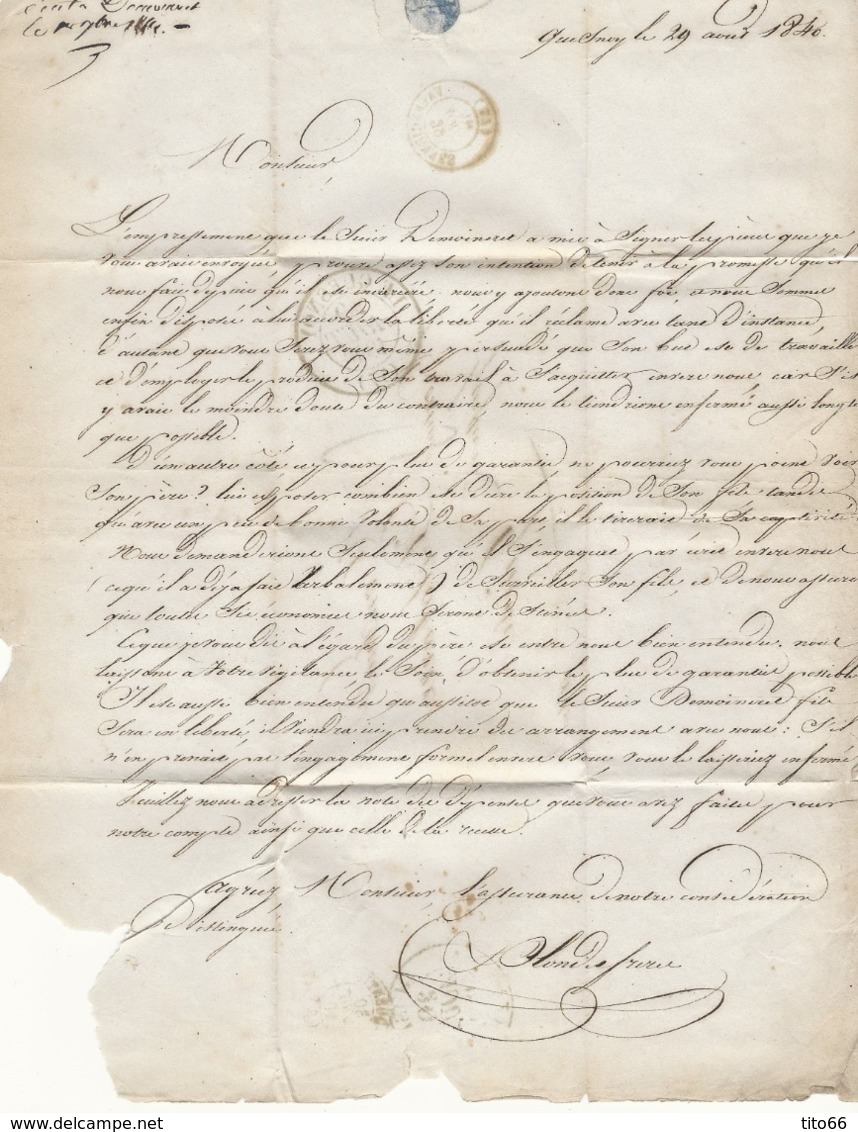 Quesnoy le 29 août 1846.
Monsieur,
L'empressement que le Sieur Demoineret a mis à Signer les pièces que je
vous avais envoyées, prouve assez son intention de tenir à la promesse qu'il
nous fait depuis qu'il est incarcéré. nous y ajoutons donc foi, et nous Sommes
enfin disposés à lui accorder la liberté qu'il réclame avec tant d'instance,
d'autant que vous Serez vous même persuadé que Son but est de travailler
et d'employer le produit de Son travail à S'acquitter envers nous car S'il
y avait le moindre doute du contraire, nous le tiendrions enfermé aussi longte
que possible.
D'un autre côté et pour plus de garantie ne pourriez vous point voir
Son père ? lui exposer combien est dure la position de Son fils tandis
qu'avec un peu de bonne volonté de Sa part, il le tirerait de Sa captivité.
Nous demanderions Seulement qu'il S'engageat par écrit envers nous
(ce qu'il a déja fait verbalement) de Surveiller Son fils, et de nous assurer
que toutes Ses économies nous Seront destinées.
Ce que je vous dis à l'égard du père est entre nous bien entendu. nous
laissons à votre vigilance le Soin d'obtenir le plus de garantie possible
Il est aussi bien entendu qu'aussitôt que le Sieur Demoineret fils
Sera en liberté, il viendra ici prendre des arrangements avec nous : S'il
n'en prenait pas l'engagement formel envers vous, vous le laisseriez enfermé
Veuillez nous adresser la note des dépenses que vous avez faites pour
notre compte ainsi que celle de la recette.
Agréez Monsieur, l'assurance de notre considération
distinguée.
Blondes frères
delcampe.net
tito66